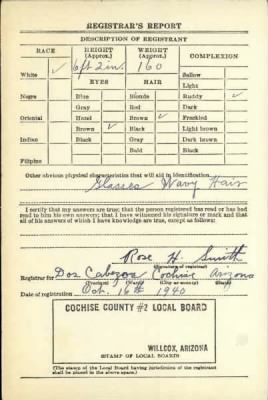 REGISTRAR'S REPORT
DESCRIPTION OF REGISTRANT
RACE HEIGHT (Approx.) WEIGHT (Approx.) COMPLEXION
White ✓ 6 ft 2 in. 160 Sallow
Light
EYES HAIR Ruddy ✓
Negro Blue Blonde Dark
Gray Red Freckled
Oriental Hazel Brown ✓ Light brown
Brown ✓ Black Dark brown
Indian Black Gray Black
Bald
Filipino
Other obvious physical characteristics that will aid in identification
Glasses Wavy Hair
I certify that my answers are true; that the person registered has read or has had
read to him his own answers; that I have witnessed his signature or mark and that
all of his answers of which I have knowledge are true, except as follows:
Rose H. Smith
(Signature of registrar)
Registrar for Dos Cabezos Cochise Arizona
(Precinct) (Ward) (City or county) (State)
Date of registration Oct. 16th 1940
COCHISE COUNTY #2 LOCAL BOARD
WILLCOX, ARIZONA
(STAMP OF LOCAL BOARD)
(The stamp of the Local Board having jurisdiction of the registrant
shall be placed in the above space.)